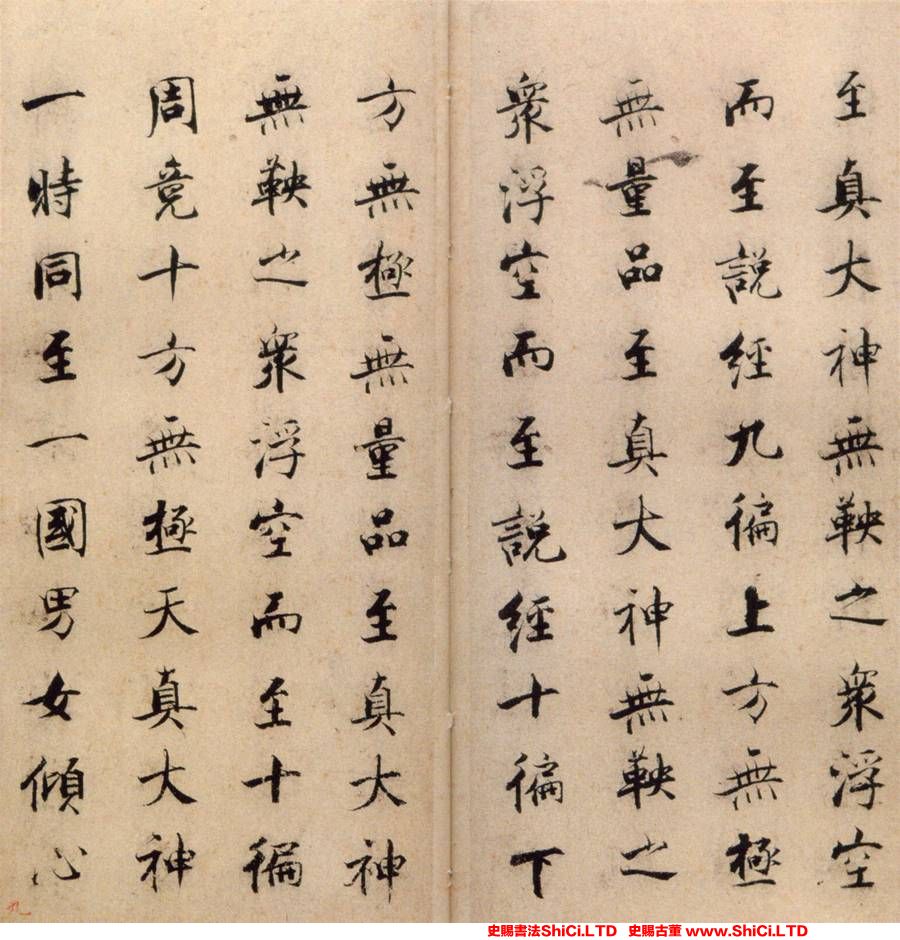 至真大神無鞅之衆浮空
而至說經九徧上方無極
無量品至真大神無鞅之
衆浮空而至說經十徧下
方無極無量品至真大神
無鞅之衆浮空而至十徧
周竟十方無極天真大神
一時同至一國男女傾心
九
史賜書法ShiCi.LTD 史賜古董 www.ShiCi.LTD